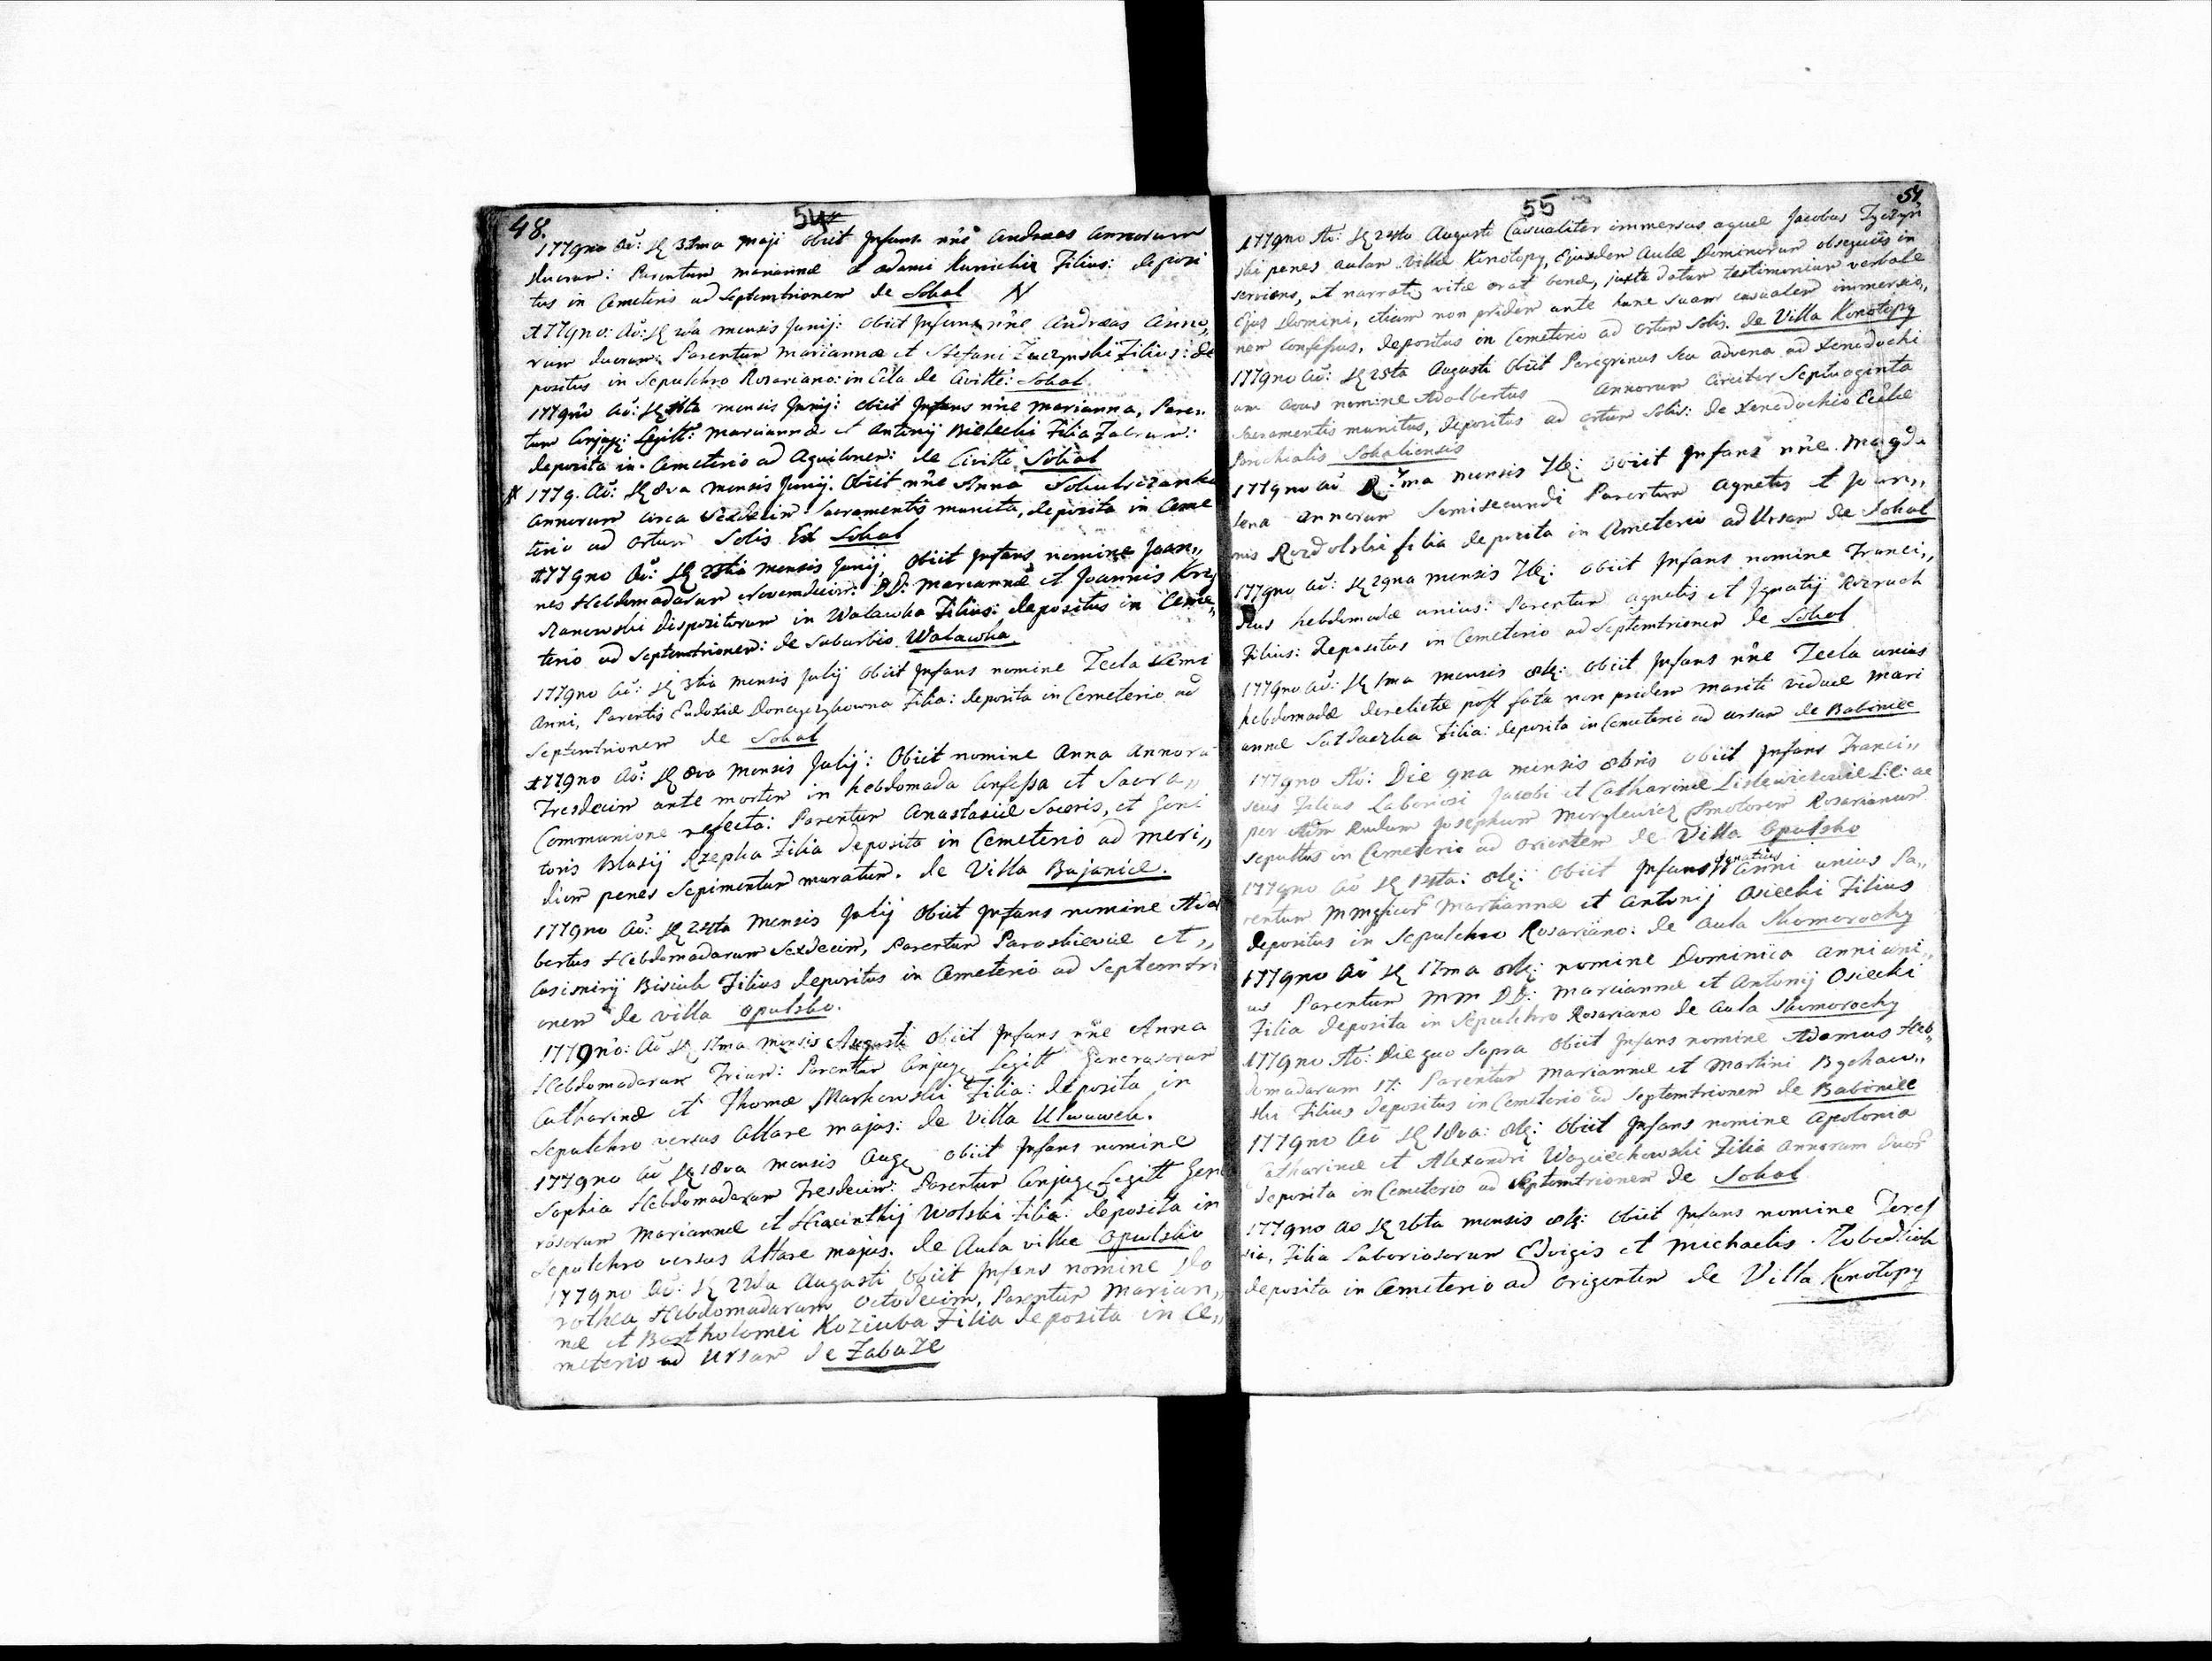 48.
54
1779no Aõ: d. 31ma Maji obiit Infans nñe Andreas Annorum
duorum: Parentum Mariannæ et Adami Kunickie Filius: deposi
tus in Cemeterio ad Septemtrionem de Sokal N
1779no: Aõ: d. 2da mensis Junij: obiit Infans nñe Andreas Anno„
rum duorum: Parentum Mariannæ et Stefani Zuczynski Filius: de
positus in Sepulchro Rosariano: in Ccla de Civitte: Sokal
1779no Aõ: d. mensis Junij: obiit Infans nñe Marianna, Paren
tum Conjug: Legitt: Mariannæ et Antonij Bielecki Filia
deposita in Cemeterio ad Aquilonem: de Civitte Sokal
1779. Aõ: d. 8va mensis Junij. Obiit nñe Anna
Annorum circa Sexdecim Sacramentis munita, deposita in Ceme
terio ad Ortum Solis Ex Sokal
1779no Aõ: d. 23tia mensis Junij, Obiit Infans nomine Joan„
nes Hebdomadarum Novemdecim: DD: Mariannæ et Joannis Krzy
zanowski Dispositorum in Walawka Filius: depositus in Ceme„
terio ad Septemtrionem: de Suburbio Walawka
1779no Aõ: d. 3tia mensis Julij Obiit Infans nomine Tecla Semi
Anni, Parentis Eudoxiæ Filia: deposita in Cemeterio ad
Septemtrionem de Sokal
1779no Aõ: d. 8va Mensis Julij: Obiit nomine Anna Annorũ
Tresdecim ante mortem in hebdomada Confessa et Sacra„
Communione refecta: Parentum Anastasiæ Soceris, et Geni
toris Blasij Rzepka Filia deposita in Cemeterio ad Meri„
diem penes Sepimentum muratum. de Villa Bujanice.
1779no Aõ: d. 24ta Mensis Julij Obiit Infans nomine Adal
bertus Hebdomadarum Sexdecim, Parentum Paraskieviæ et„
Casimirij Bisiuk Filius depositus in Cemeterio ad Septemtri
onem de villa Opulsko.
1779no: Aõ d. 17ma mensis Augusti obiit Infans nñe Anna
Hebdomadarum Trium: Parentum Conjug. Legitt Generosorum
Catharinæ et Thomæ Markowski Filia: deposita in
Sepulchro versus Altare majus: de Villa Ulwuwek.
1779no Aõ d. 18va Mensis Aug. Obiit Infans nomine
Sophia Hebdomadarum Tresdecim: Parentum Conjug. Legitt Gene
rosorum Mariannæ et Hiacinthij Wolski filia: deposita in
Sepulchro versus Altare majus. de Aula villæ Opulsko
1779no Aõ: d. 22da Augusti Obiit Infans nomine Do
rothea Hebdomadarum Octodecim, Parentum Marian„
næ et Bartholomei Koziuba Filia deposita in Ce„
meterio ad Ursam de Zabuze
55
54
1779no Ao: d. 24to Augusti Casualiter immersus aquæ Jacobus Tyczyn
ski penes aulam Villæ Konotopy, Ejusdem Aulæ Dominorum obsequiis in
serviens, ut narratur vitæ erat bonæ, juxta datum testimonium verbale
Ejus Domini, etiam non pridem ante hanc suam casualem immersio„
nem Confessus, depositus in Cemeterio ad Ortum Solis. de Villa Konotopy
1779no Aõ: d. 25ta Augusti Obiit Peregrinus Seu advena ad Xenodochi
um nomine Adalbertus Annorum Circiter Septuaginta
Sacramentis munitus, depositus ad Ortum Solis: de Xenodochio Eccle
Parochialis Sokaliensis
1779no Aõ d. 7ma mensis 7bq: Obiit Infans nñe Magda
lena Annorum Semisecundi Parentum Agnetis et Joan„
nis Rozdolski filia deposita in Cemeterio ad Ursam de Sokal
1779no Aõ: d. 29na mensis 7bq: Obiit Infans nomine Franci„
scus hebdomadæ unius: Parentum Agnetis et Ignatij
Filius: depositus in Cemeterio ad Septemtrionem de Sokal
1779no Aõ: d. 1ma mensis 8bq: Obiit Infans nñe Tecla unius
hebdomadæ derelictæ post fata non pridem mariti viduæ Mari
annæ Filia: deposita in Cemeterio ad Ursam de Babiniec
1779no Ao: Die 9na mensis 8bris Obiit Infans Franci„
scus Filius Laboriosi Jacobi et Catharinæ L:C: ac
per Adm Rndum Josephum Promotorem Rosarianum
sepultus in Cemeterio ad Orientem de Villa Opulsko
1779no Aõ d. 12ta: 8bq: Obiit Infans Ignatius Anni unius Pa„
rentum Mariannæ et Antonij Osiecki Filius
depositus in Sepulchro Rosariano: de Aula Skomorochy
1779no Aõ d. 17ma 8bq: nomine Dominica anni uni„
us Parentum MM DD: Mariannæ et Antonij Osiecki
Filia deposita in Sepulchro Rosariano de Aula Skomorochy
1779no Ao: Die quo Supra Obiit Infans nomine Adamus Heb„
domadarum 17: Parentum Mariannæ et Martini Bychow„
ski Filius depositus in Cemeterio ad Septemtrionem de Babiniec
1779no Aõ d. 18va: 8bq: Obiit Infans nomine Apolonia
Catharinæ et Alexandri Woyciechowski Filia Annorum duor
deposita in Cemeterio ad Septemtrionem de Sokal
1779no Ao d. 26ta mensis 8bq: Obiit Infans nomine Teres
sia, Filia Laboriosorum Edvigis et Michaelis
deposita in Cemeterio ad Origentem de Villa Konotopy